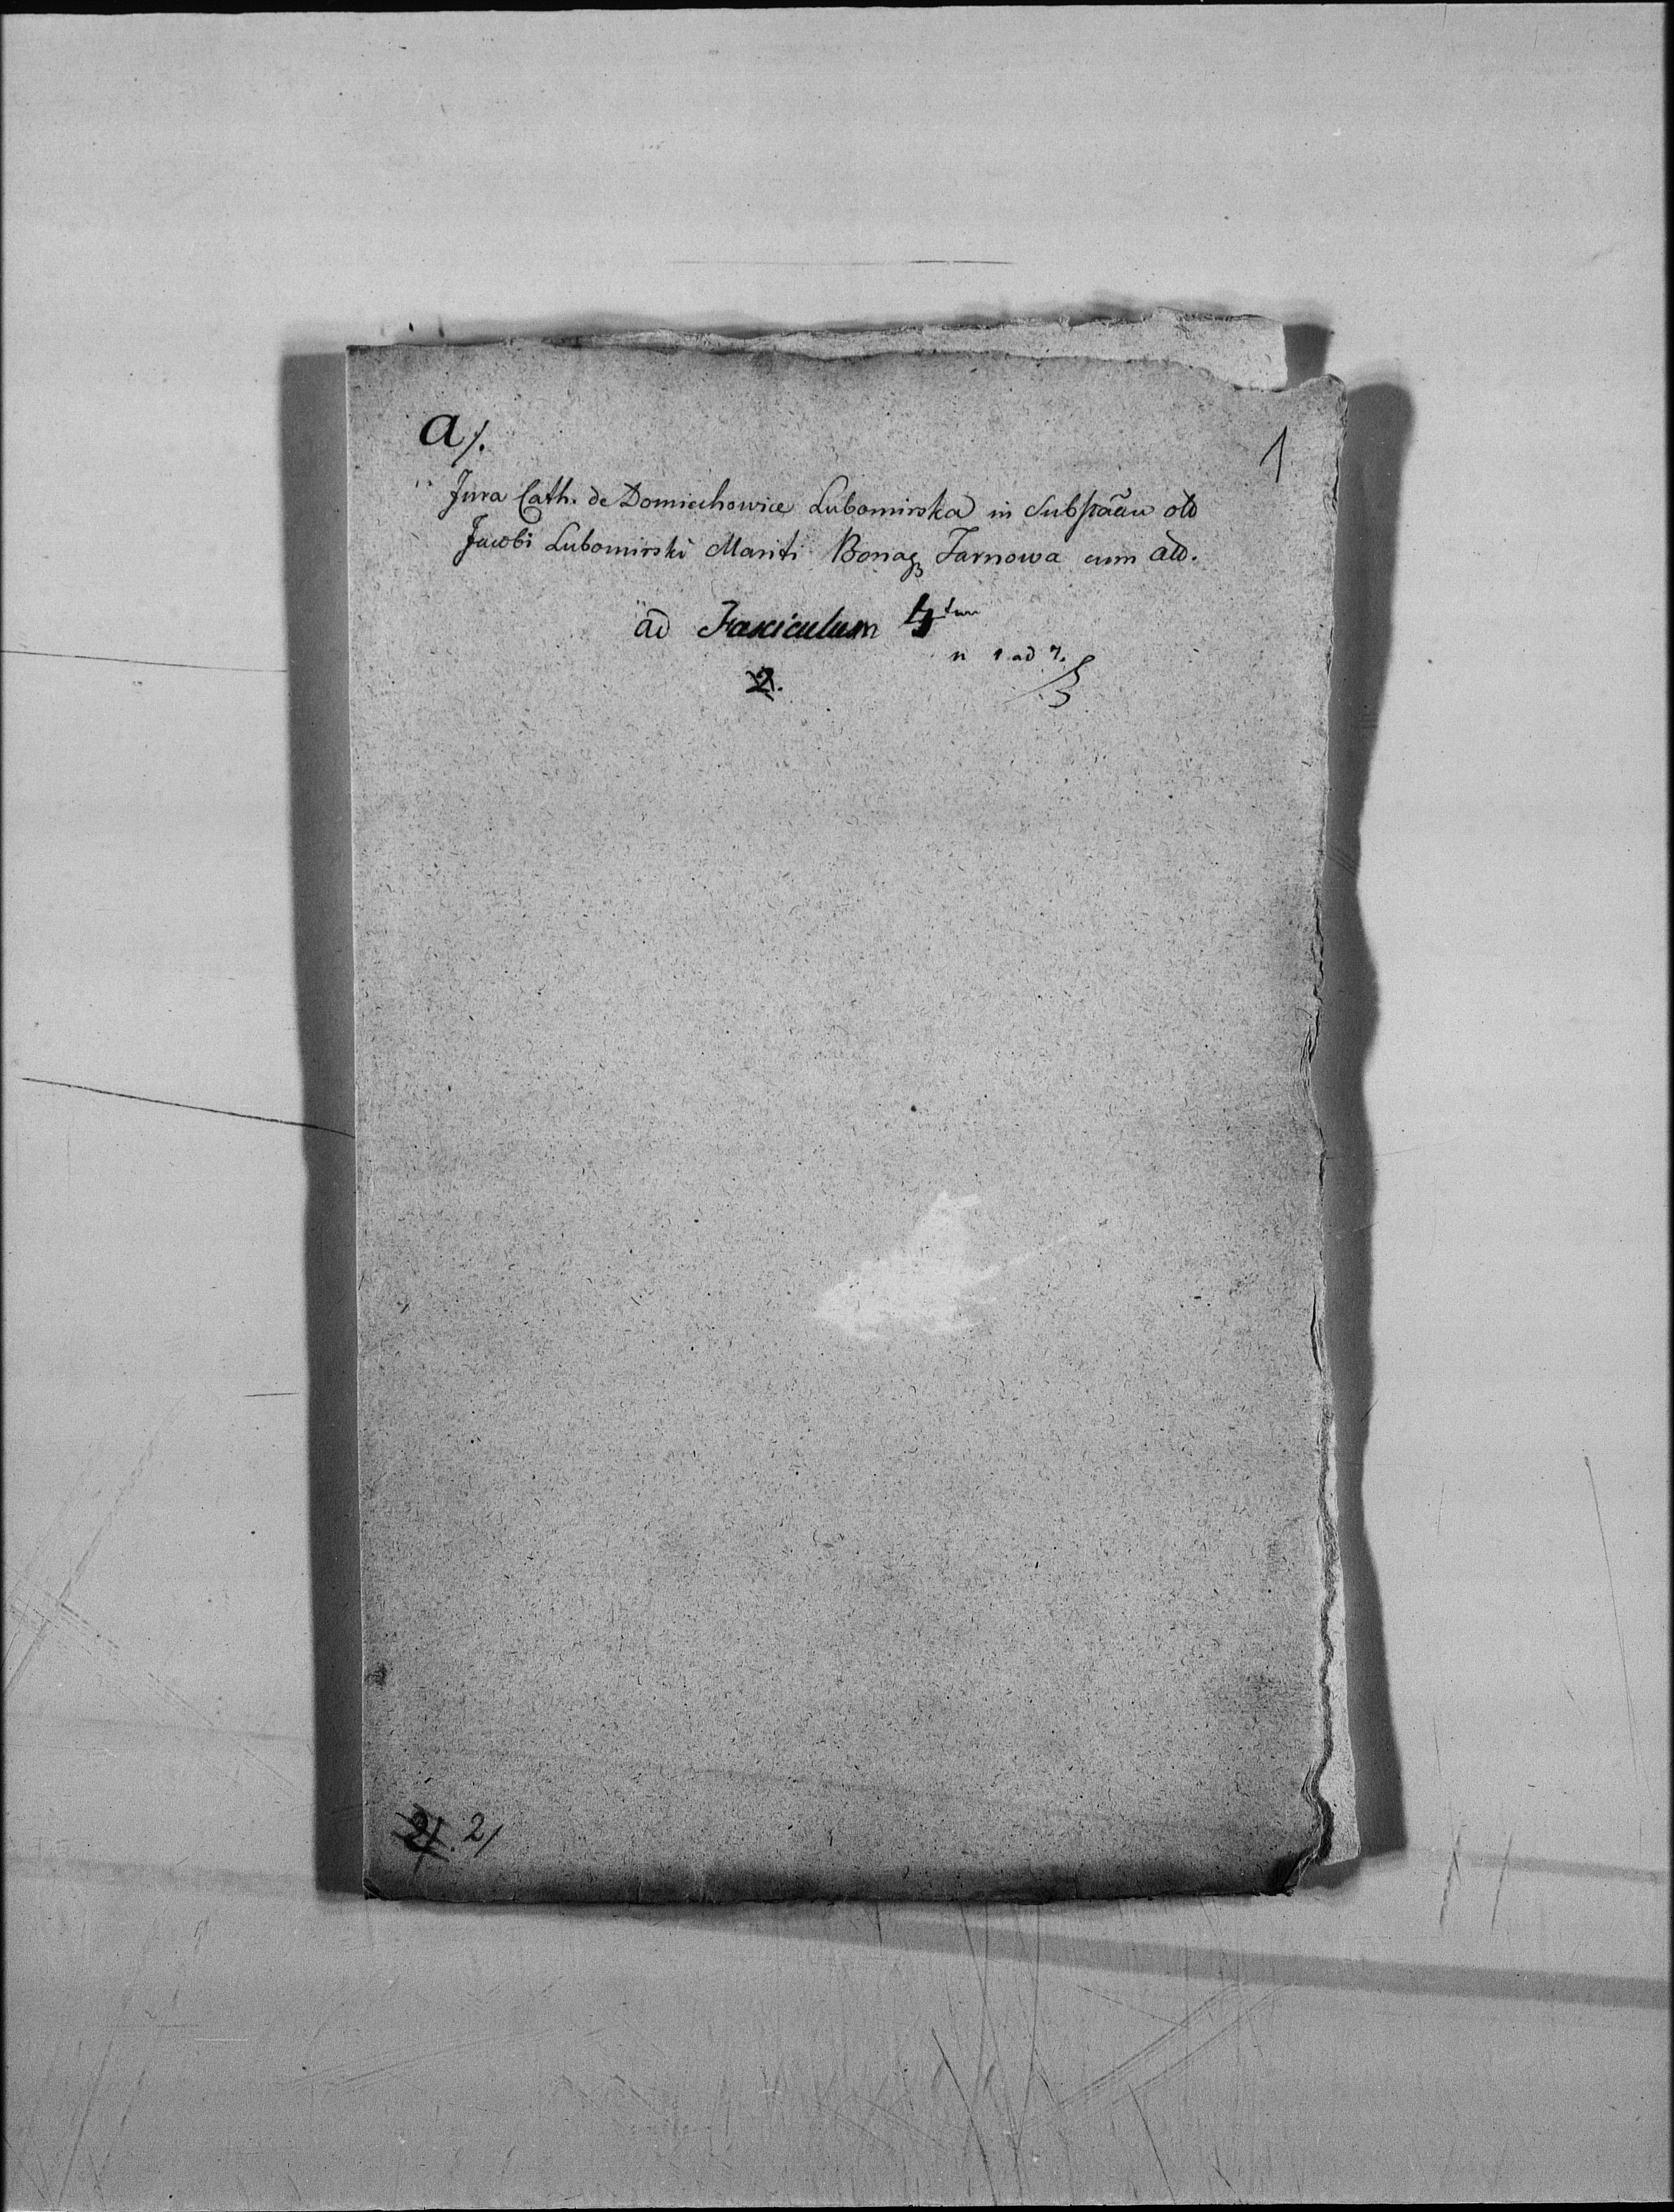 a/.
1
Jura Cath. de Domiechowice Lubomirska in Substãău olo
Jacobi Lubomirski Mariti Bonaqȝ Tarnowa cum ad.
ad Fasciculum 4tum
n 1 ad 7.
2.
2/. 2/